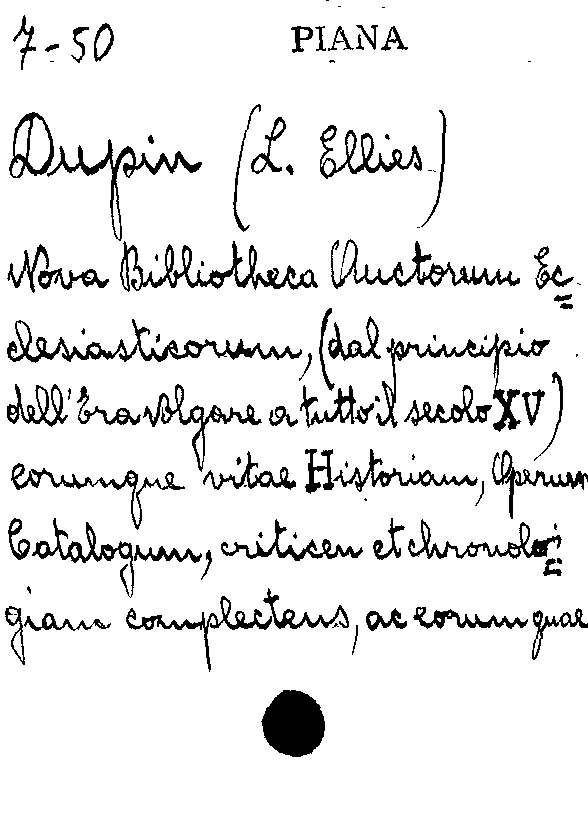 7-50 PIANA
Dupin (L. Ellies)
Nova Bibliotheca Auctorum Ec=
clesiasticorum, (dal principio
dell'Era Volgare a tutto il secolo XV)
eorumque vitae Historiam, Operum
Catalogum, criticen et chronolo=
giam complectens, ac eorum quae